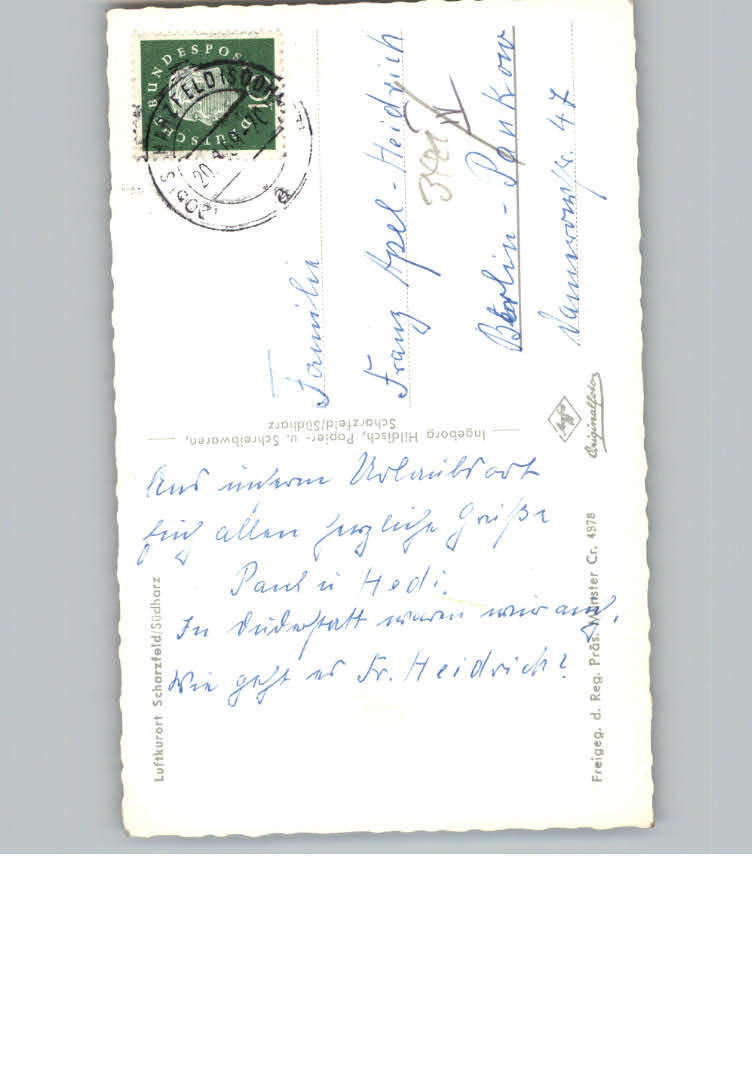 Aus unserm Urlaubsort
Euch allen herzliche Grüße
Paul u Hedi.
In Duderstatt waren wir auch,
Wie geht es Fr. Heidrich?
Familie
Franz Apel-Heidrich
Berlin-Pankow
47
Luftkurort Scharzfeld/Südharz
Ingeborg Hildisch, Papier- u. Schreibwaren,
Scharzfeld/Südharz
Agfa
Originalfoto
Freigeg. d. Reg. Präs. Münster Cr. 4978
DEUTSCHE BUNDESPOST